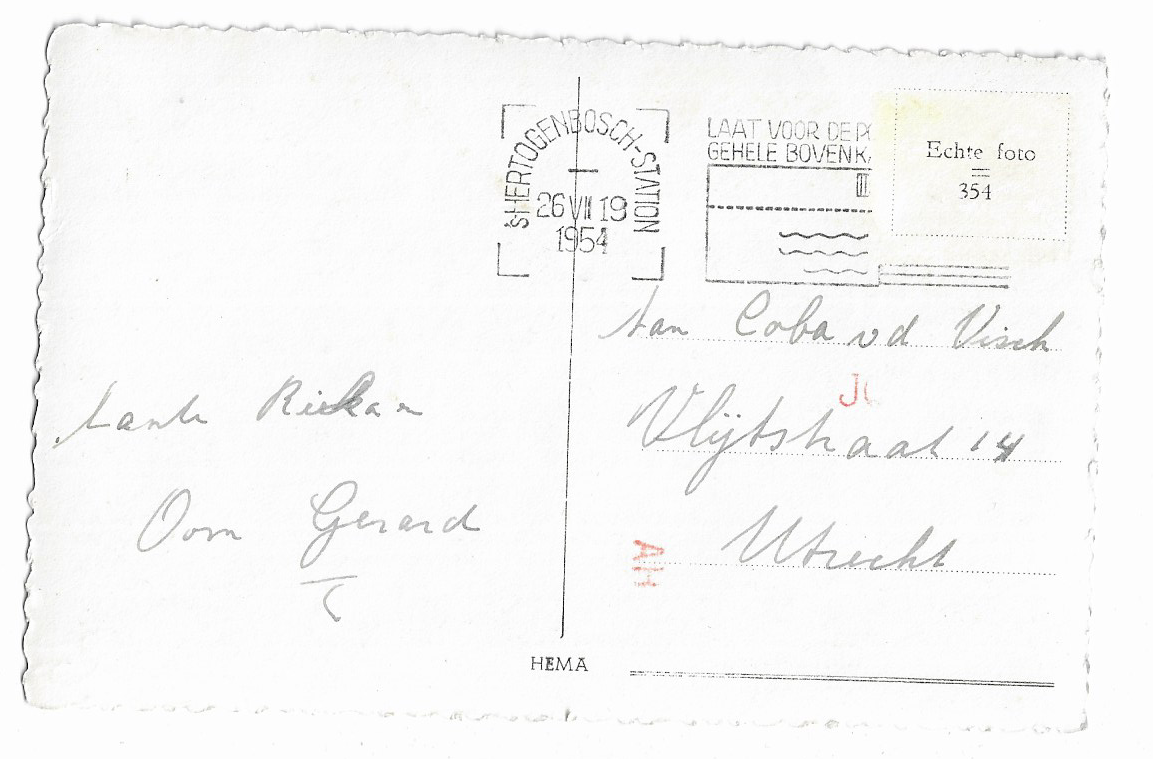 'SHERTOGENBOSCH-STATION
26 VII 19
1954
LAAT VOOR DE PO
GEHELE BOVENKA
Echte foto
354
Aan Coba vd Visch
Vlijtstraat 14
Utrecht
tante Riek en
Oom Gerard
AH
HEMA